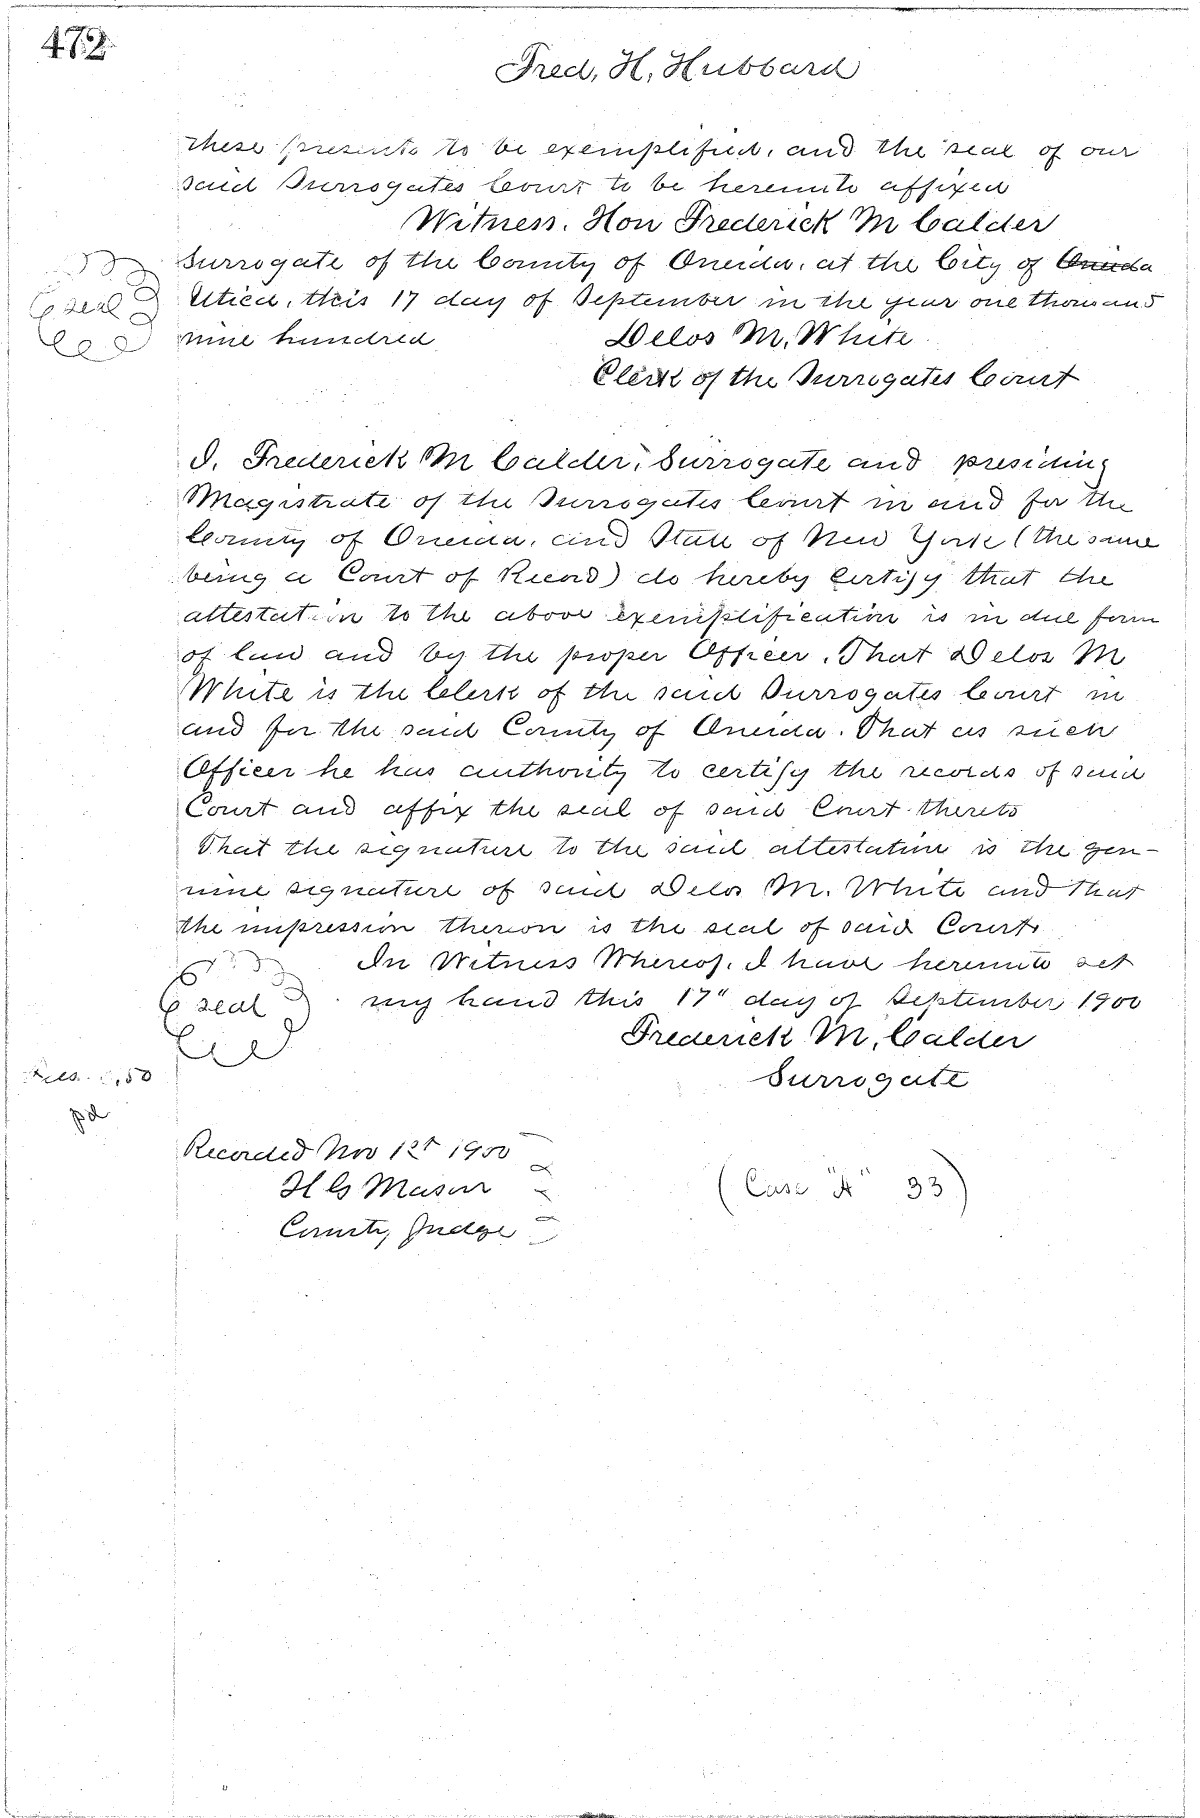 472
Fred, H, Hubbard
these presents to be exemplified, and the seal of our
said Surrogates Court to be hereunto affixed
Witness. Hon Frederick M Calder
Surrogate of the County of Oneida, at the City of Oneida
seal
Utica, this 17 day of September in the year one thousand
nine hundred
Delos M, White
Clerk of the Surrogates Court
I, Frederick M Calder, Surrogate and presiding
Magistrate of the Surrogates Court in and for the
County of Oneida, and State of New York (the same
being a Court of Record) do hereby Certify that the
attestation to the above exemplification is in due form
of law and by the proper Officer. That Delos M
White is the Clerk of the said Surrogates Court in
and for the said County of Oneida. That as such
Officer he has authority to certify the records of said
Court and affix the seal of said Court thereto
That the signature to the said attestation is the gen-
uine signature of said Delos M. White and that
the impression thereon is the seal of said Court.
In Witness Whereof, I have hereunto set
seal
my hand this 17" day of September 1900
Frederick M, Calder
Surrogate
Fees ,50
pd
Recorded Nov 12" 1900
H G Mason
County Judge
(Case "A" 33)